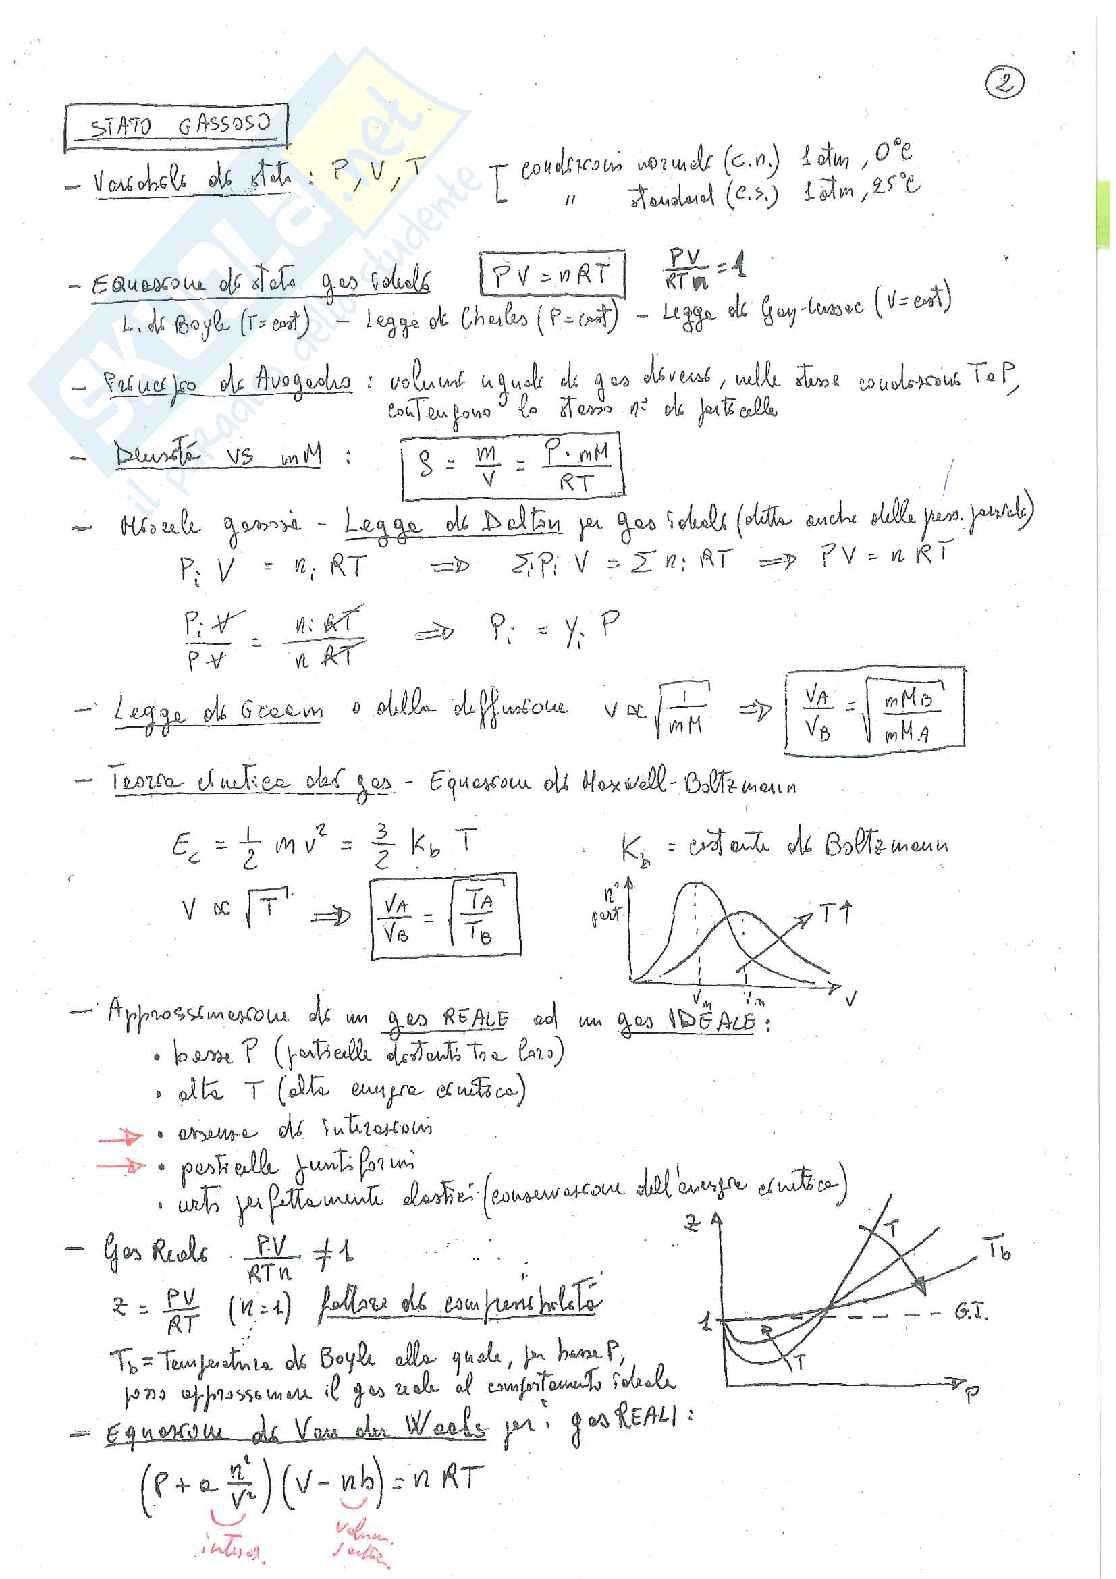 2
STATO GASSOSO
- Variabili di stato : P, V, T [ condizioni normali (c.n.) 1 atm, 0°C
" standard (c.s.) 1 atm, 25°C
- Equazione di stato gas ideali PV = nRT PV/RTn = 1
L. di Boyle (T=cost) - Legge di Charles (P=cost) - Legge di Gay-Lussac (V=cost)
- Principio di Avogadro : volumi uguali di gas diversi, nelle stesse condizioni T e P,
contengono lo stesso n° di particelle
- Densità vs mM : δ = m/V = P·mM/RT
- Miscele gassose - Legge di Dalton per gas ideali (detta anche delle press. parziali)
Pi V = ni RT ⇒ Σi Pi V = Σ ni RT ⇒ PV = nRT
Pi V/PV = ni RT/n RT ⇒ Pi = yi P
- Legge di Graam o della diffusione v ∝ √(1/mM) ⇒ VA/VB = √(mMB/mMA)
- Teoria cinetica dei gas - Equazione di Maxwell-Boltzmann
Ec = 1/2 m v² = 3/2 Kb T Kb = costante di Boltzmann
v ∝ √T ⇒ VA/VB = √(TA/TB)
n° part T↑
Vm Vm V
- Approssimazione di un gas REALE ad un gas IDEALE :
• bassa P (particelle distanti tra loro)
• alta T (alta energia cinetica)
→ • assenza di interazioni
→ • particelle puntiformi
• urti perfettamente elastici (conservazione dell'energia cinetica)
- Gas Reali PV/RTn ≠ 1
Z = PV/RT (n=1) fattore di comprensibilità
Tb = Temperatura di Boyle alla quale, per basse P,
posso approssimare il gas reale al comportamento ideale
Z T Tb
1 G.I.
T P
- Equazione di Van der Waals per i gas REALI :
(P + a n²/V²)(V - nb) = nRT
interaz. volum.
skuola.net
il paradiso dello studente